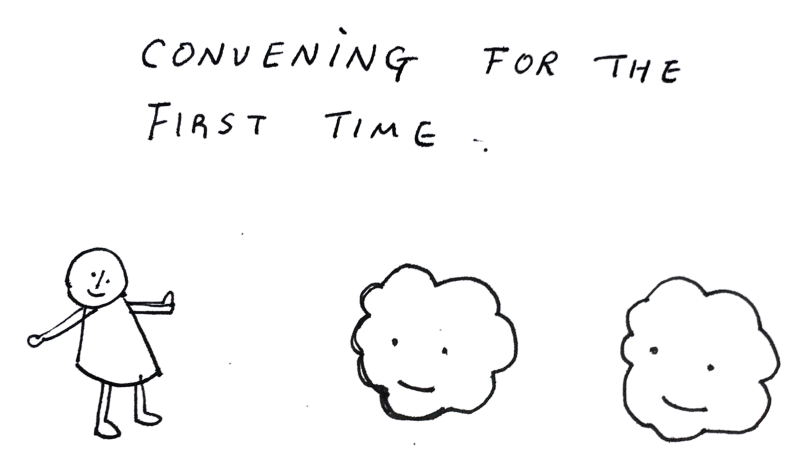 CONVENING FOR THE
FIRST TIME.